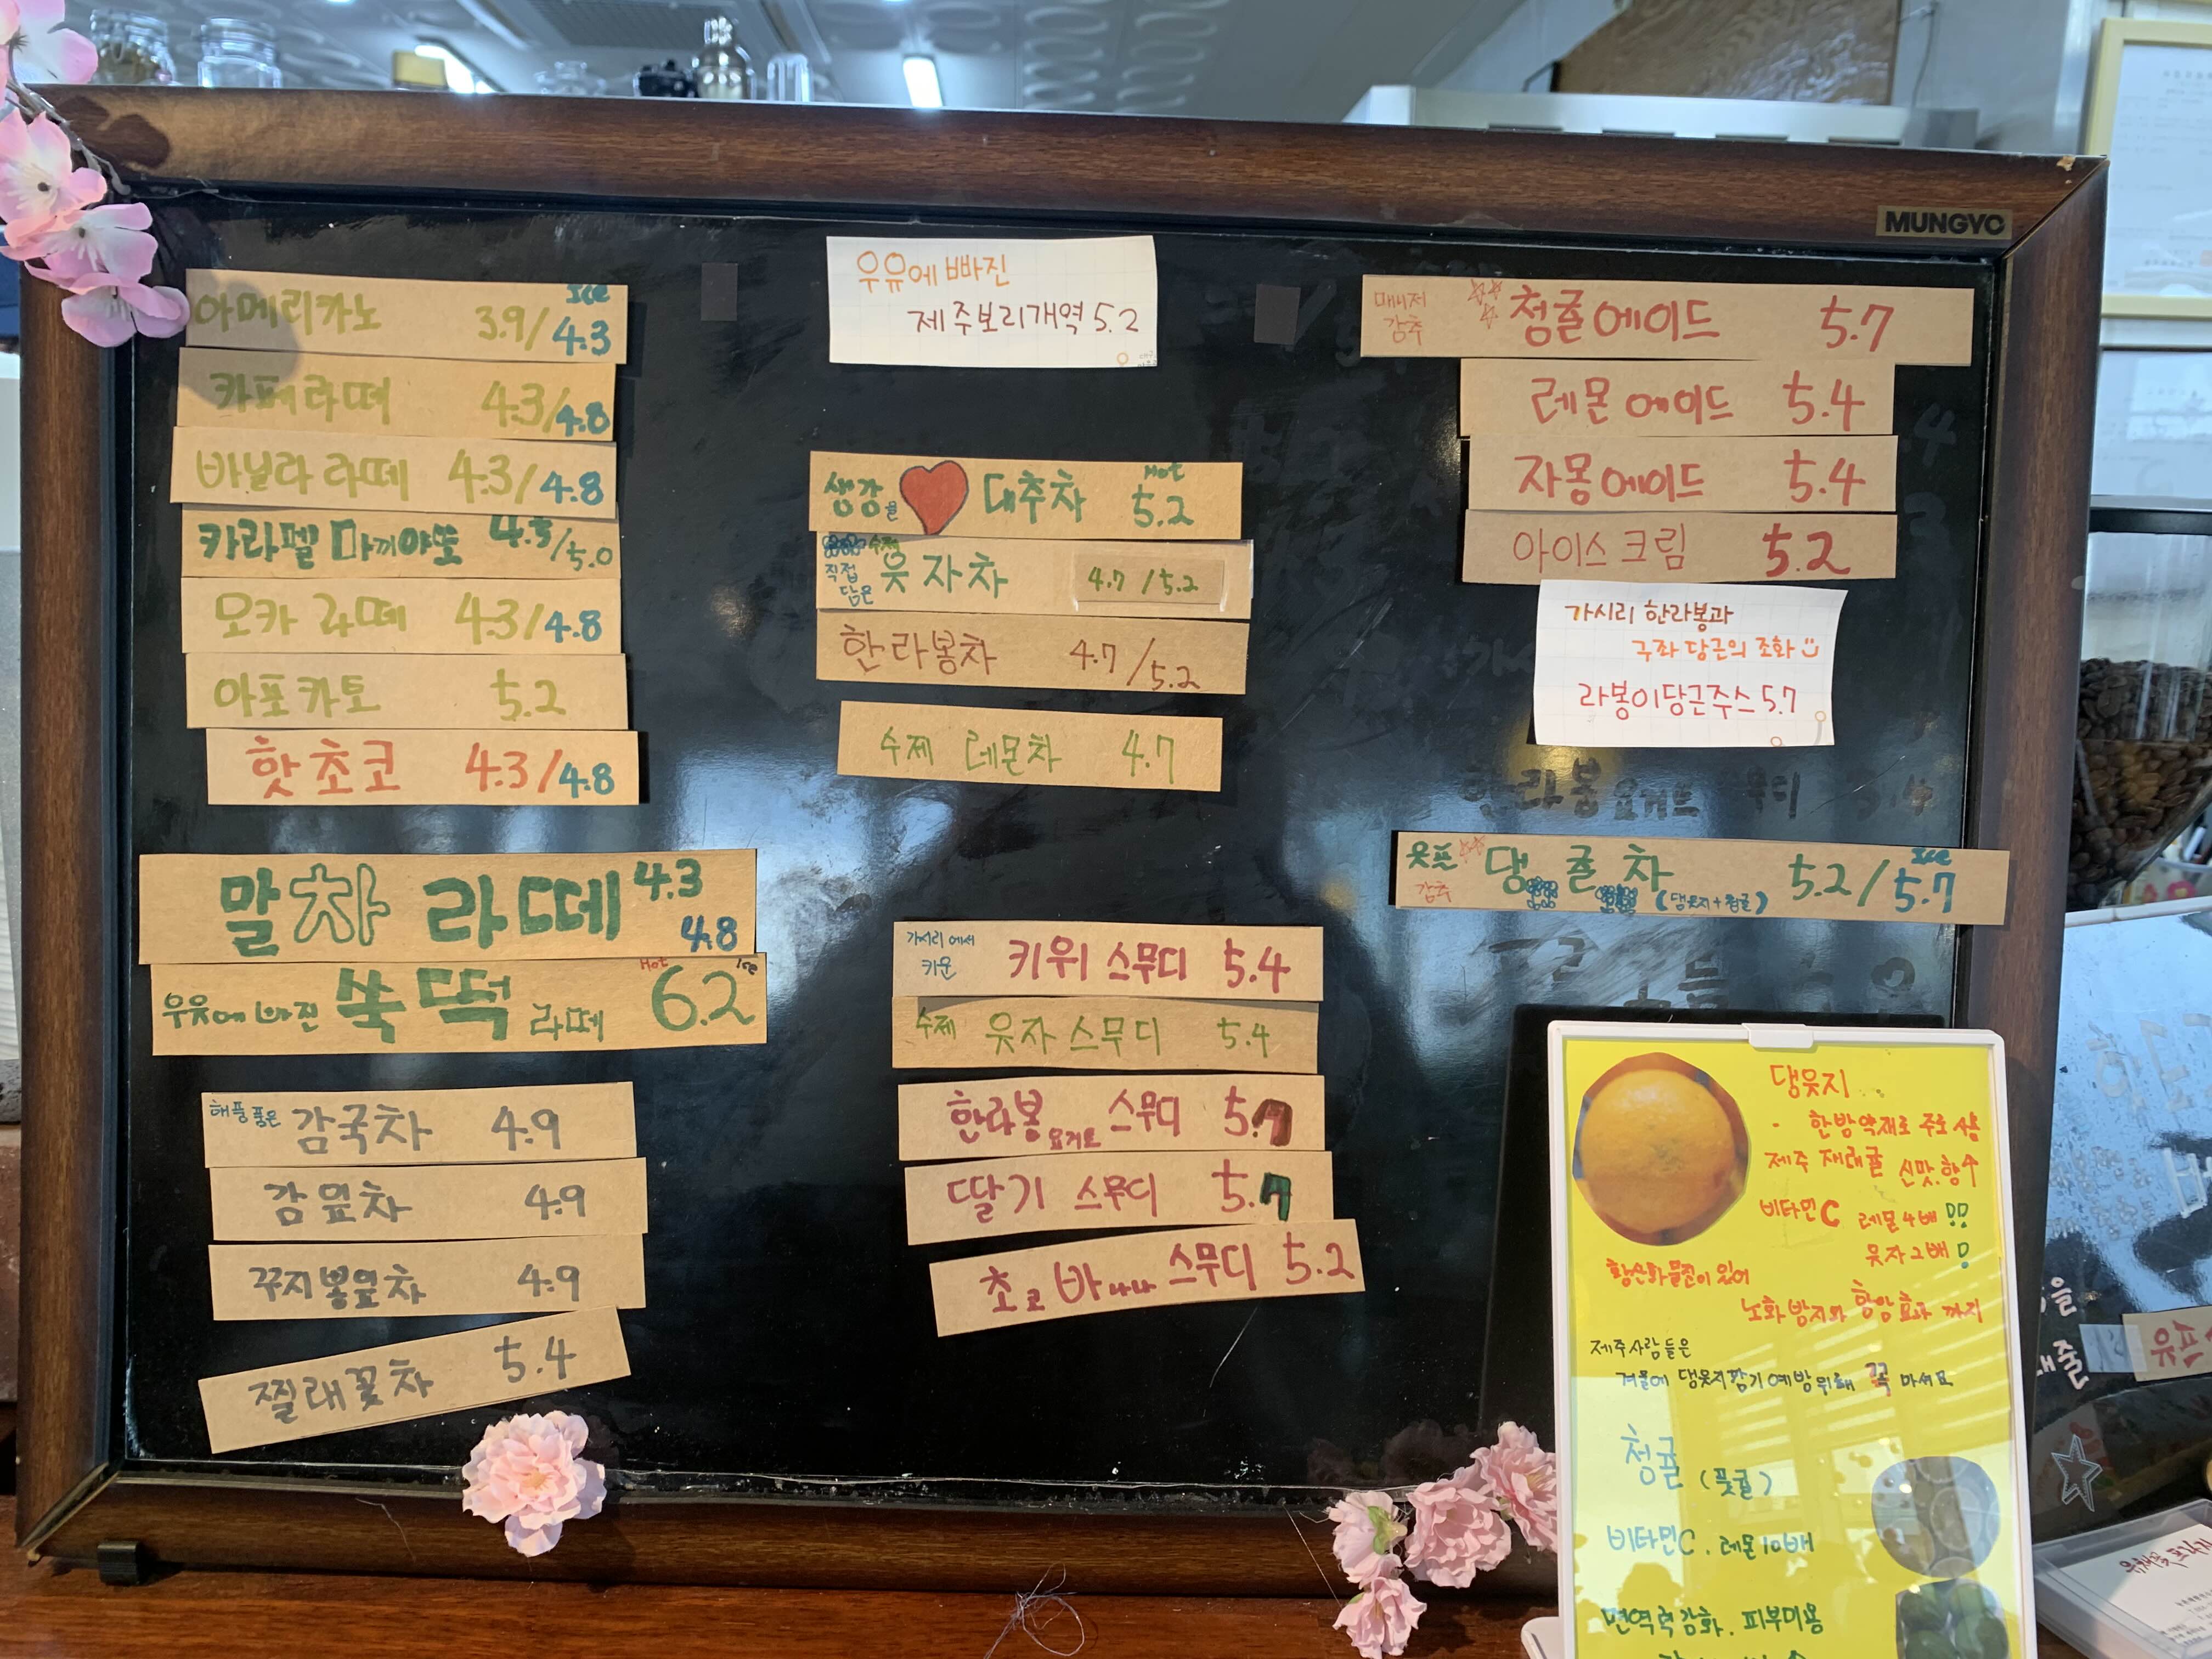 MUNGYO
Ice
아메리카노 3.9/4.3
카페라떼 4.3/4.8
바닐라 라떼 4.3/4.8
카라멜 마끼야또 4.5/5.0
모카 라떼 4.3/4.8
아포카토 5.2
핫초코 4.3/4.8
말차 라떼 4.3
4.8
Hot Ice
우유에 빠진 쑥떡 라떼 6.2
해풍품은 감국차 4.9
감잎차 4.9
꾸지뽕잎차 4.9
찔레꽃차 5.4
우유에 빠진
제주보리개역 5.2
Hot
생강을 대추차 5.2
수제
직접
담은 유자차 4.7/5.2
한라봉차 4.7/5.2
수제 레몬차 4.7
가시리에서
키운 키위 스무디 5.4
수제 유자 스무디 5.4
한라봉 요거트 스무디 5.7
딸기 스무디 5.7
초코바나나 스무디 5.2
매니저
강추 청귤에이드 5.7
레몬에이드 5.4
자몽에이드 5.4
아이스크림 5.2
가시리 한라봉과
구좌 당근의 조화
라봉이당근주스 5.7
한라봉 요거트
Ice
유프
강추 댕귤차 (댕유지+청귤) 5.2/5.7
댕유지
- 한방약재로 주로 사용
제주 재래귤 신맛.향↑
비타민C 레몬4배!!
유자2배!
항산화물질이 있어
노화방지와 항암효과 까지
제주사람들은
겨울에 댕유지 감기예방위해 꼭 마셔요
청귤 (풋귤)
비타민C. 레몬10배
면역력강화. 피부미용